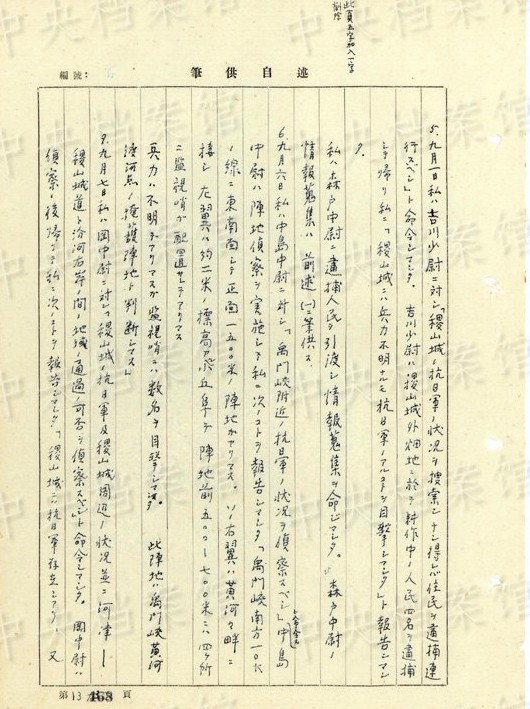 此頁五字加入一字
削除
編號：
筆供自述
5. 九月一日私ハ吉川少尉ニ対シ「稷山城ノ抗日軍ノ状況ヲ捜索シナシ得レバ住民ヲ逮捕連
行スベシ」ト命令シマシタ。吉川少尉ハ稷山城外畑地ニ於テ耕作中ノ人民四名ヲ逮捕
シテ帰リ私ニ「稷山城ニハ兵力不明ナルモ抗日軍ノアルコトヲ目撃シマシタ」ト報告シマシ
タ。
私ハ森戸中尉ニ逮捕人民ヲ引渡シ情報蒐集ヲ命ジマシタ。森戸中尉ノ
情報蒐集ハ前述(一)ニ筆供ス
6. 九月六日私ハ中島中尉ニ対シ「禹門峡附近ノ抗日軍ノ状況ヲ偵察スベシ」ト命令シ中島
中尉ハ陣地偵察ヲ実施シテ私ニ次ノコトヲ報告シマシタ「禹門峡南方一〇〇米
ノ線ニ東南面シテ正面一五〇〇米ノ陣地ガアリマス。ソノ右翼ハ黄河々畔ニ
接シ左翼ハ約二米ノ標高 丘阜デ陣地前五〇〇—七〇〇米ニハ四ヶ所
ニ監視哨ガ配置サレテアリマス
兵力ハ不明デアリマスガ監視哨ニハ数名ヲ目撃シマシタ。此陣地ハ禹門峡黄河
渡河点ノ掩護陣地ト判断シマス」
7. 九月七日私ハ岡中尉ニ対シ「稷山城ノ抗日軍及稷山城周辺ノ状況並ニ河津—
稷山城道ト汾河右岸ノ間ノ地域ノ通過ノ可否ヲ偵察スベシ」ト命令シマシタ。岡中尉ハ
偵察ノ後帰リテ私ニ次ノコトヲ報告シマシタ。「稷山城ニハ抗日軍存在シアリ、又
第13 頁